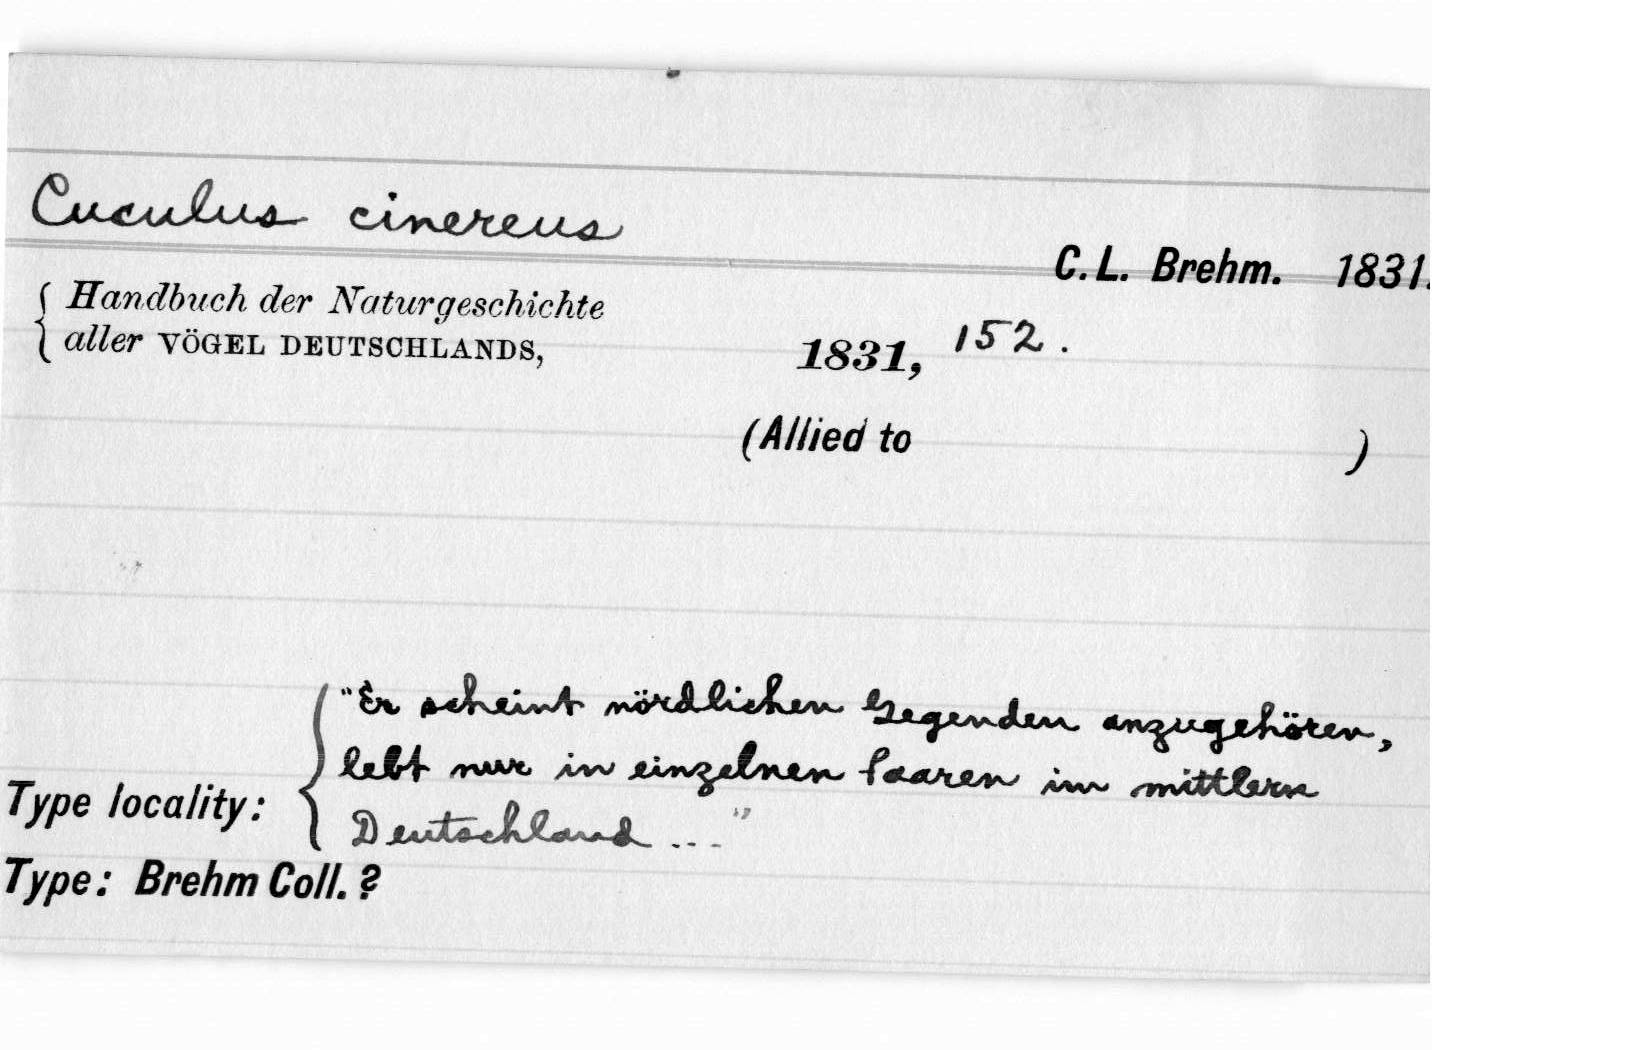 Cuculus cinereus
C. L. Brehm. 1831.
Handbuch der Naturgeschichte
aller VÖGEL DEUTSCHLANDS,
1831, 152.
(Allied to )
"Er scheint nördlichen Gegenden anzugehören,
lebt nur in einzelnen Paaren im mittlern
Type locality:
Deutschland ..."
Type: Brehm Coll. ?